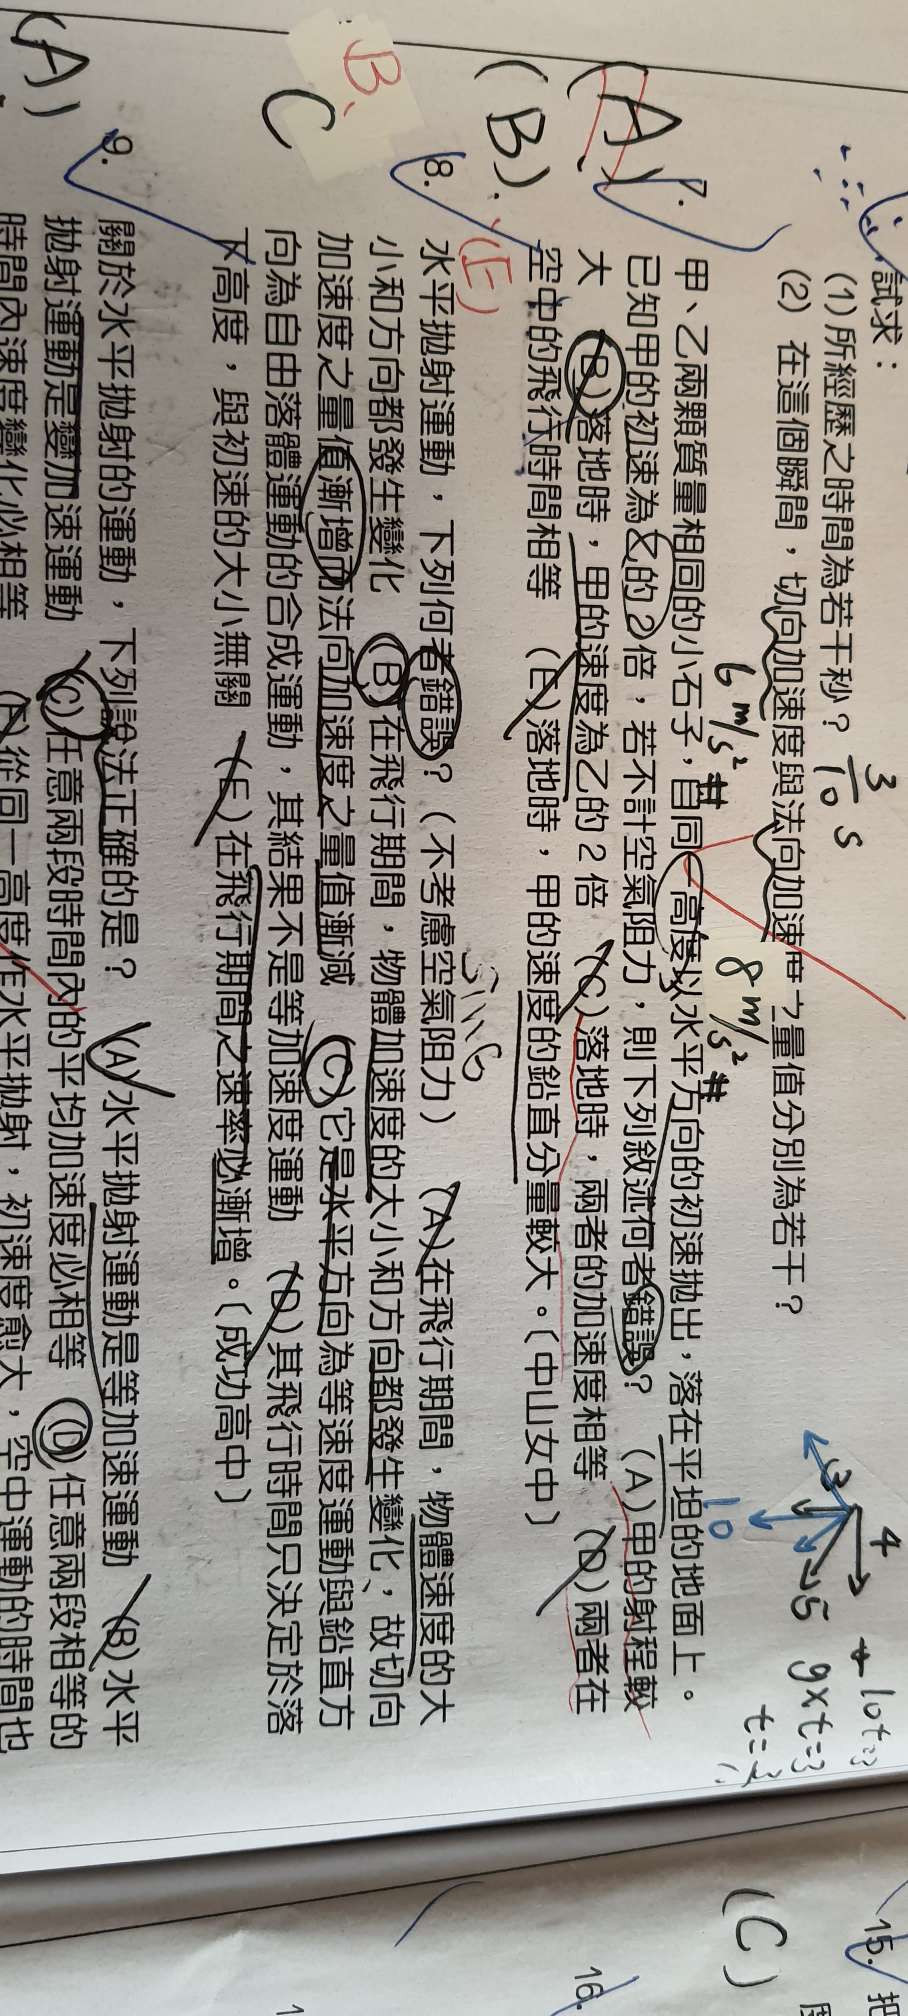 試求：
(1)所經歷之時間為若干秒？ 3/10 s
(2) 在這個瞬間，切向加速度與法向加速度之量值分別為若干？
6 m/s² # 8 m/s² #
4
3
5
10
10t=3
g×t=3
(A)
(B).
7. 甲、乙兩顆質量相同的小石子，自同一高度以水平方向的初速拋出，落在平坦的地面上。
已知甲的初速為乙的2倍，若不計空氣阻力，則下列敘述何者錯誤？ (A)甲的射程較
大 (B)落地時，甲的速度為乙的2倍 (C)落地時，兩者的加速度相等 (D)兩者在
空中的飛行時間相等 (E)落地時，甲的速度的鉛直分量較大。〔中山女中〕
(E)
B、
C
8. 水平拋射運動，下列何者錯誤？（不考慮空氣阻力） (A)在飛行期間，物體速度的大
小和方向都發生變化 (B)在飛行期間，物體加速度的大小和方向都發生變化、故切向
加速度之量值漸增而法向加速度之量值漸減 (C)它是水平方向為等速度運動與鉛直方
向為自由落體運動的合成運動，其結果不是等加速度運動 (D)其飛行時間只決定於落
下高度，與初速的大小無關 (E)在飛行期間之速率必漸增。〔成功高中〕
(A)
9. 關於水平拋射的運動，下列說法正確的是？ (A)水平拋射運動是等加速運動 (B)水平
拋射運動是變加速運動 (C)任意兩段時間內的平均加速度必相等 (D)任意兩段相等的
時間內速度變化必相等 (E)從同一高度作水平拋射，初速度愈大，空中運動的時間也
(C)
15. 把
16.